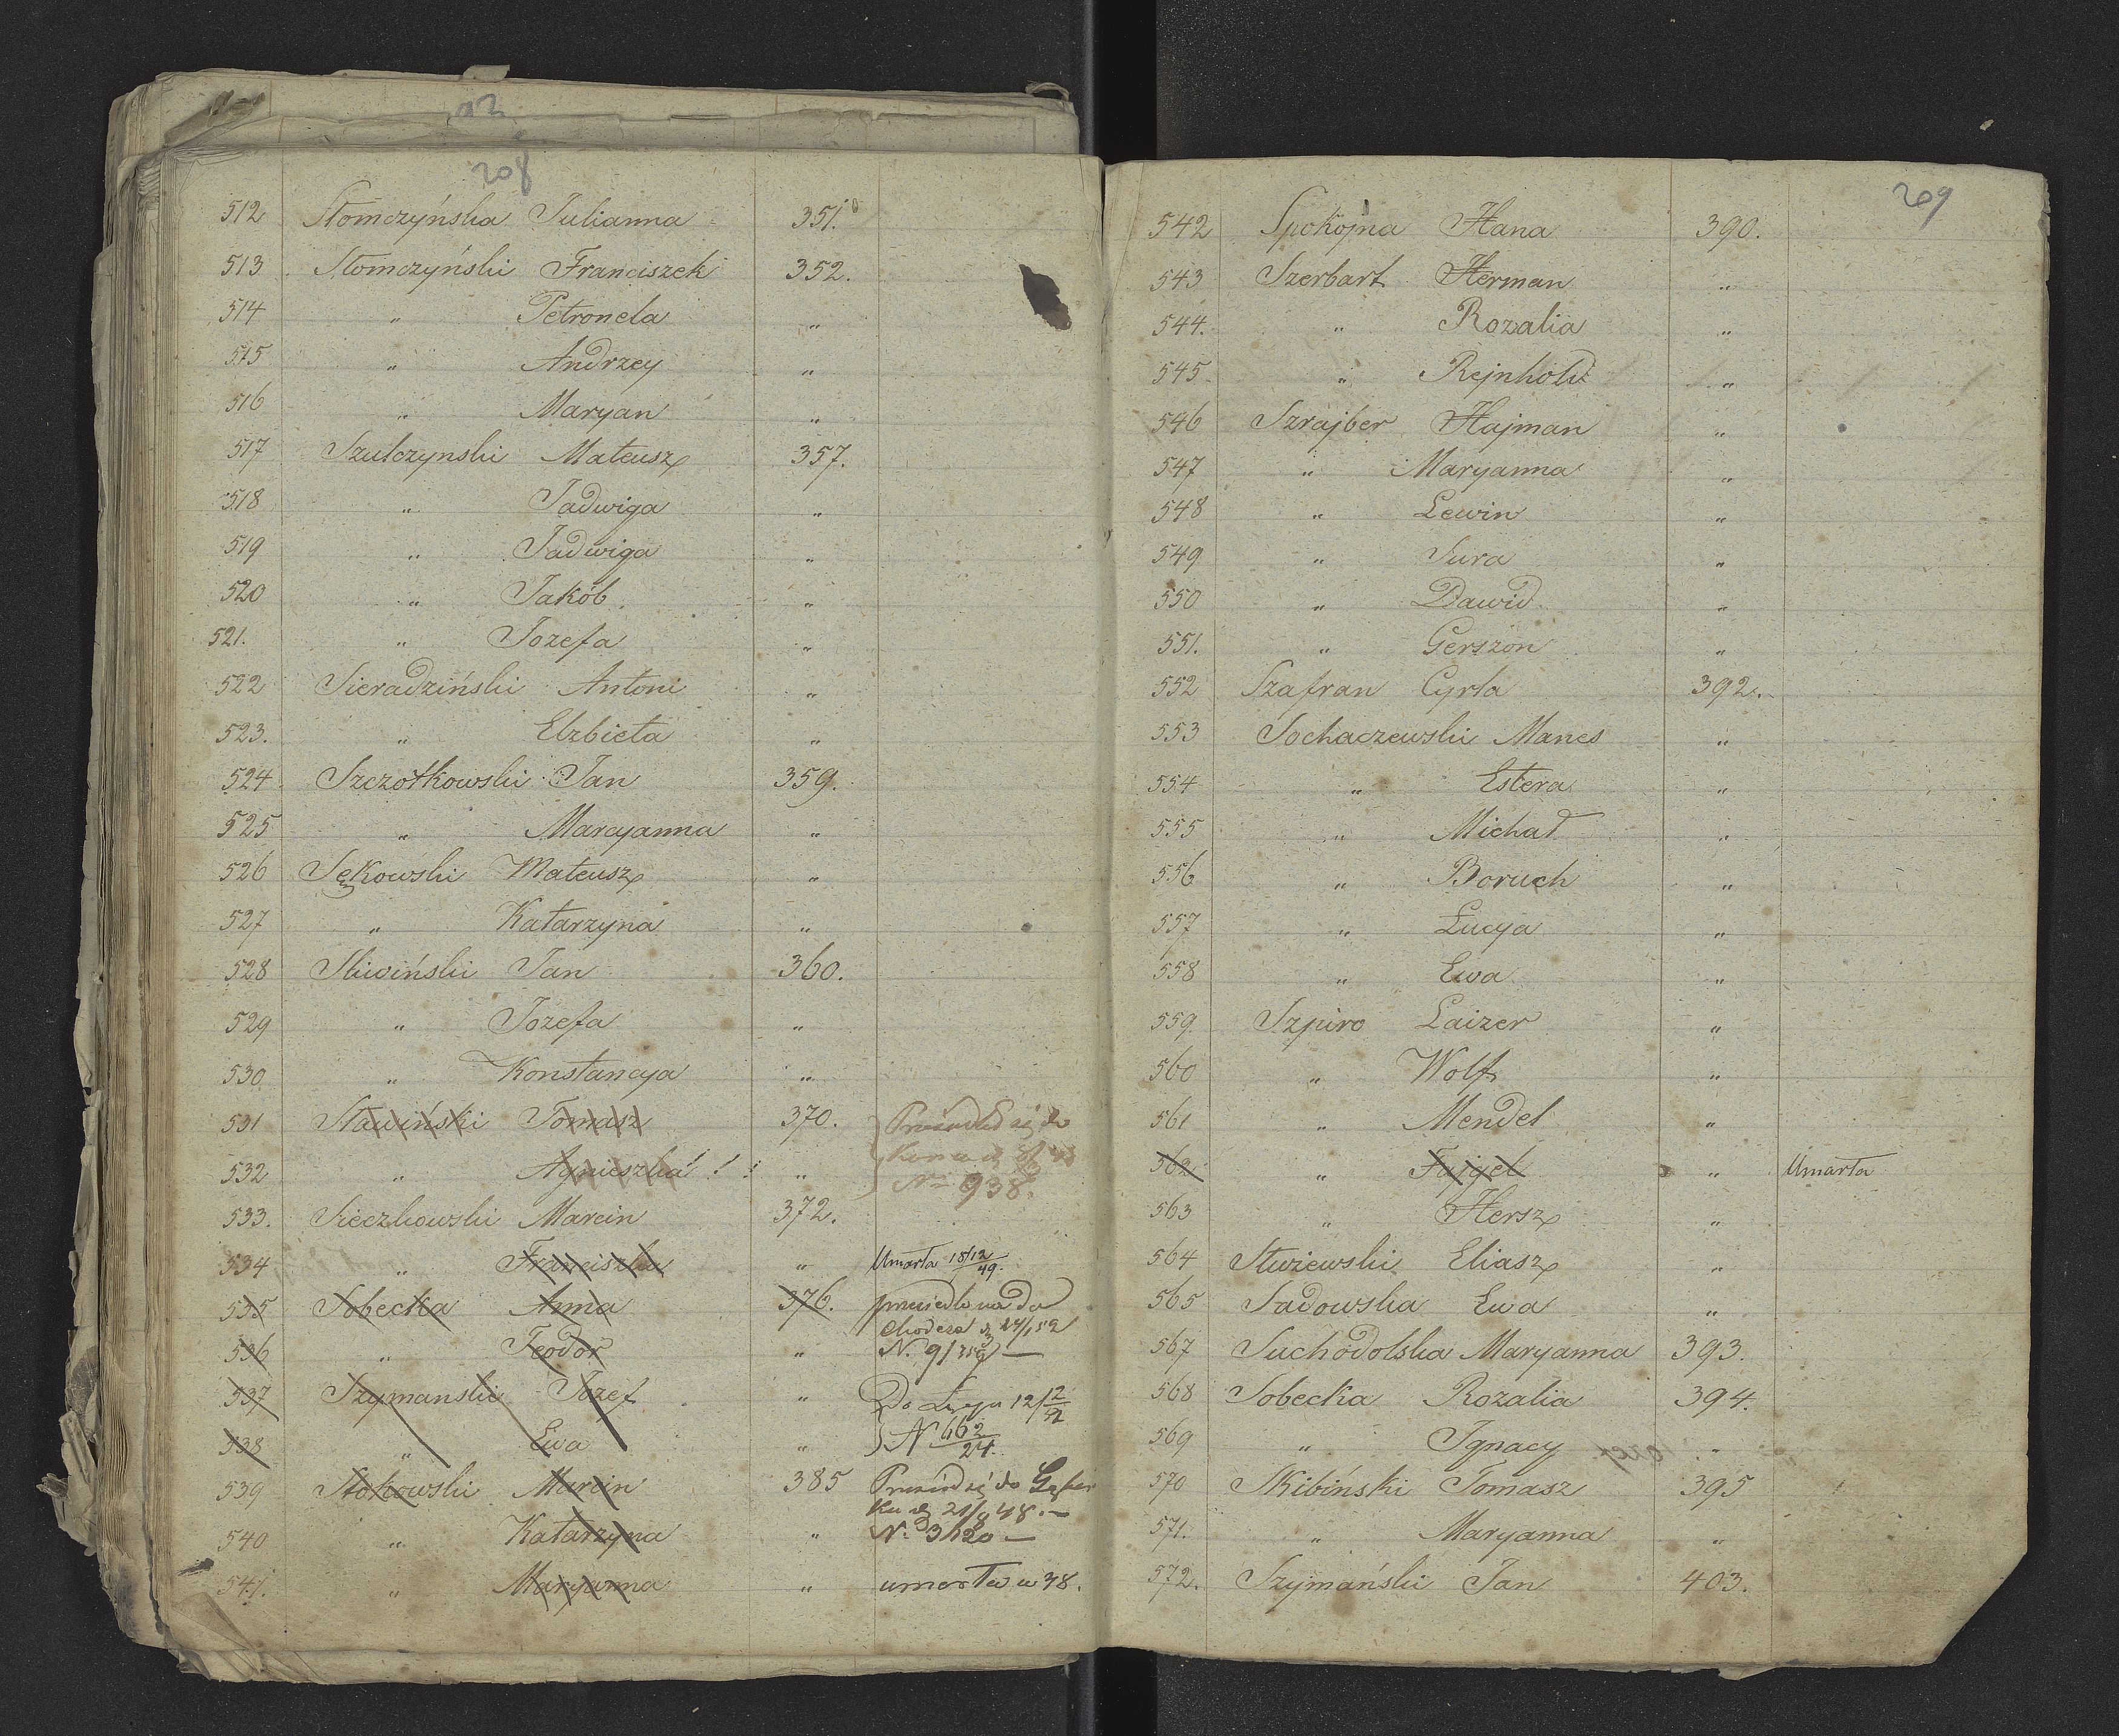 93
208
512 Słomczyńska Julianna 351.
513 Słomczyński Franciszek 352.
514 " Petronela "
515 " Andrzey "
516 " Maryan "
517 Szulczynski Mateusz 357.
518 " Jadwiga "
519 " Jadwiga "
520 " Jakób. "
521. " Jozefa "
522 Sieradziński Antoni "
523. " Elzbieta "
524 Szczotkowski Jan 359.
525 " Maryanna "
526 Sękowski Mateusz "
527 " Katarzyna "
528 Sliwiński Jan 360.
529 " Jozefa "
530 " Konstancya "
531 Sławiński Tomasz 370.
532 " Agnieszka "
No 938.
533. Sieczkowski Marcin 372.
534 " Franciszka " Umarła 18/12 49.
535 Sobecka Anna 376. do
Chodcza d 24/1 52
536 " Teodor " N. 9/
537 Szymanski Jozef " do 12/2 52
538 " Ewa " N 662/24.
539 Stokowski Marcin 385 do
21/9 48.—
540 " Katarzyna " N. 3/120 —
541. " Maryanna " umarła w 48.
209
542 Spokojna Hana 390.
543 Szerbart Herman "
544. " Rozalia "
545. " Rejnhold "
546 Szrajber Hajman "
547 " Maryanna "
548 " Lewin "
549 " Sura "
550 " Dawid "
551. " Gerszon "
552 Szafran Cyrla 392.
553 Sochaczewski Manes "
554 " Estera "
555 " Michał "
556 " Boruch "
557 " Łucya "
558 " Ewa "
559. Szpiro Laizer "
560 " Wolf "
561 " Mendel "
562. " Fajgel " Umarła
563 " Hersz "
564 Służewski Eliasz "
565 Sadowska Ewa "
567 Suchodolska Maryanna 393.
568 Sobecka Rozalia 394.
569 " Ignacy "
570 Skibiński Tomasz 395
571. " Maryanna "
572. Szymański Jan 403.